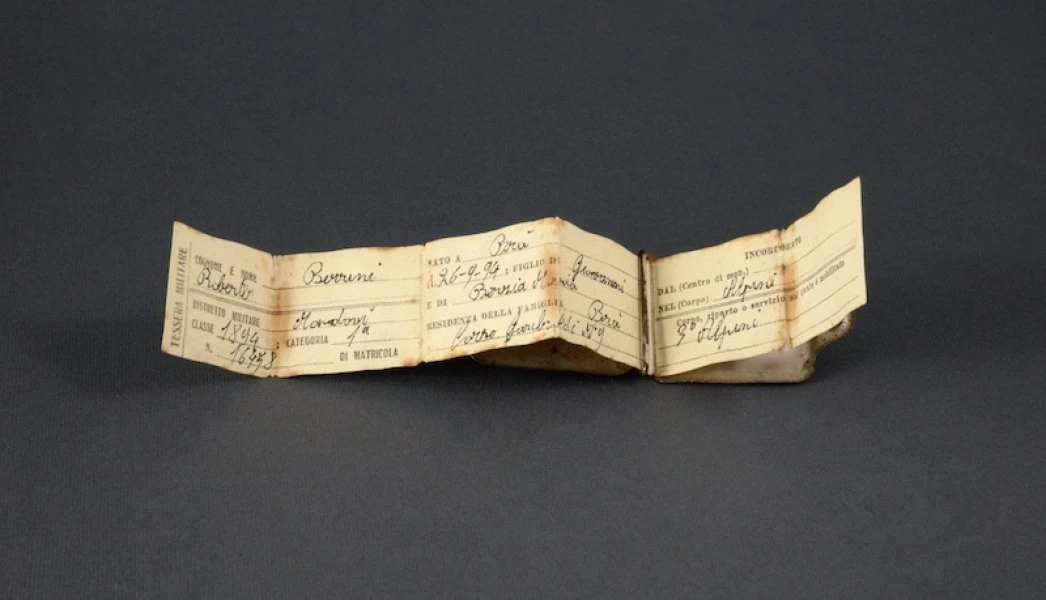 TESSERA MILITARE
COGNOME E NOME Berrini
Roberto
DISTRETTO MILITARE Mondovì
CLASSE 1894 CATEGORIA 1ª
N. 16778 DI MATRICOLA
NATO A Brà
IL 26-9-94 ; FIGLIO DI Giovanni
E DI Maria
RESIDENZA DELLA FAMIGLIA Brà
Corso Garibaldi N 9
INCORPORATO
DAL (Centro di mob.)
NEL (Corpo) Alpini
Corpo, riparto o servizio nel quale è mobilitato
Alpini